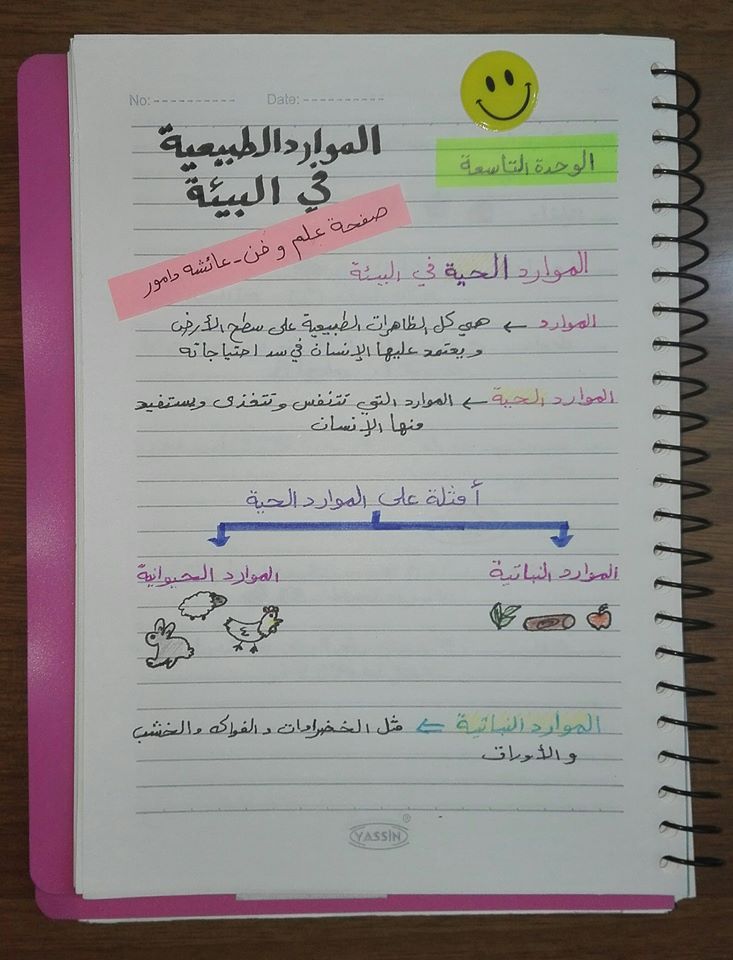 No: - - - - - - - - - - Date: - - - - - - - - - -
الوحدة التاسعة
الموارد الطبيعية
في البيئة
صفحة علم و فن - عائشه دامور
الموارد الحية في البيئة
الموارد ← هي كل الظاهرات الطبيعية على سطح الأرض
ويعتمد عليها الإنسان في سد احتياجاته
الموارد الحية ← الموارد التي تتنفس وتتغذى ويستفيد
منها الإنسان
أمثلة على الموارد الحية
الموارد النباتية
الموارد الحيوانية
الموارد النباتية ⇐ مثل الخضراوات والفواكه والخشب
والأوراق
YASSIN